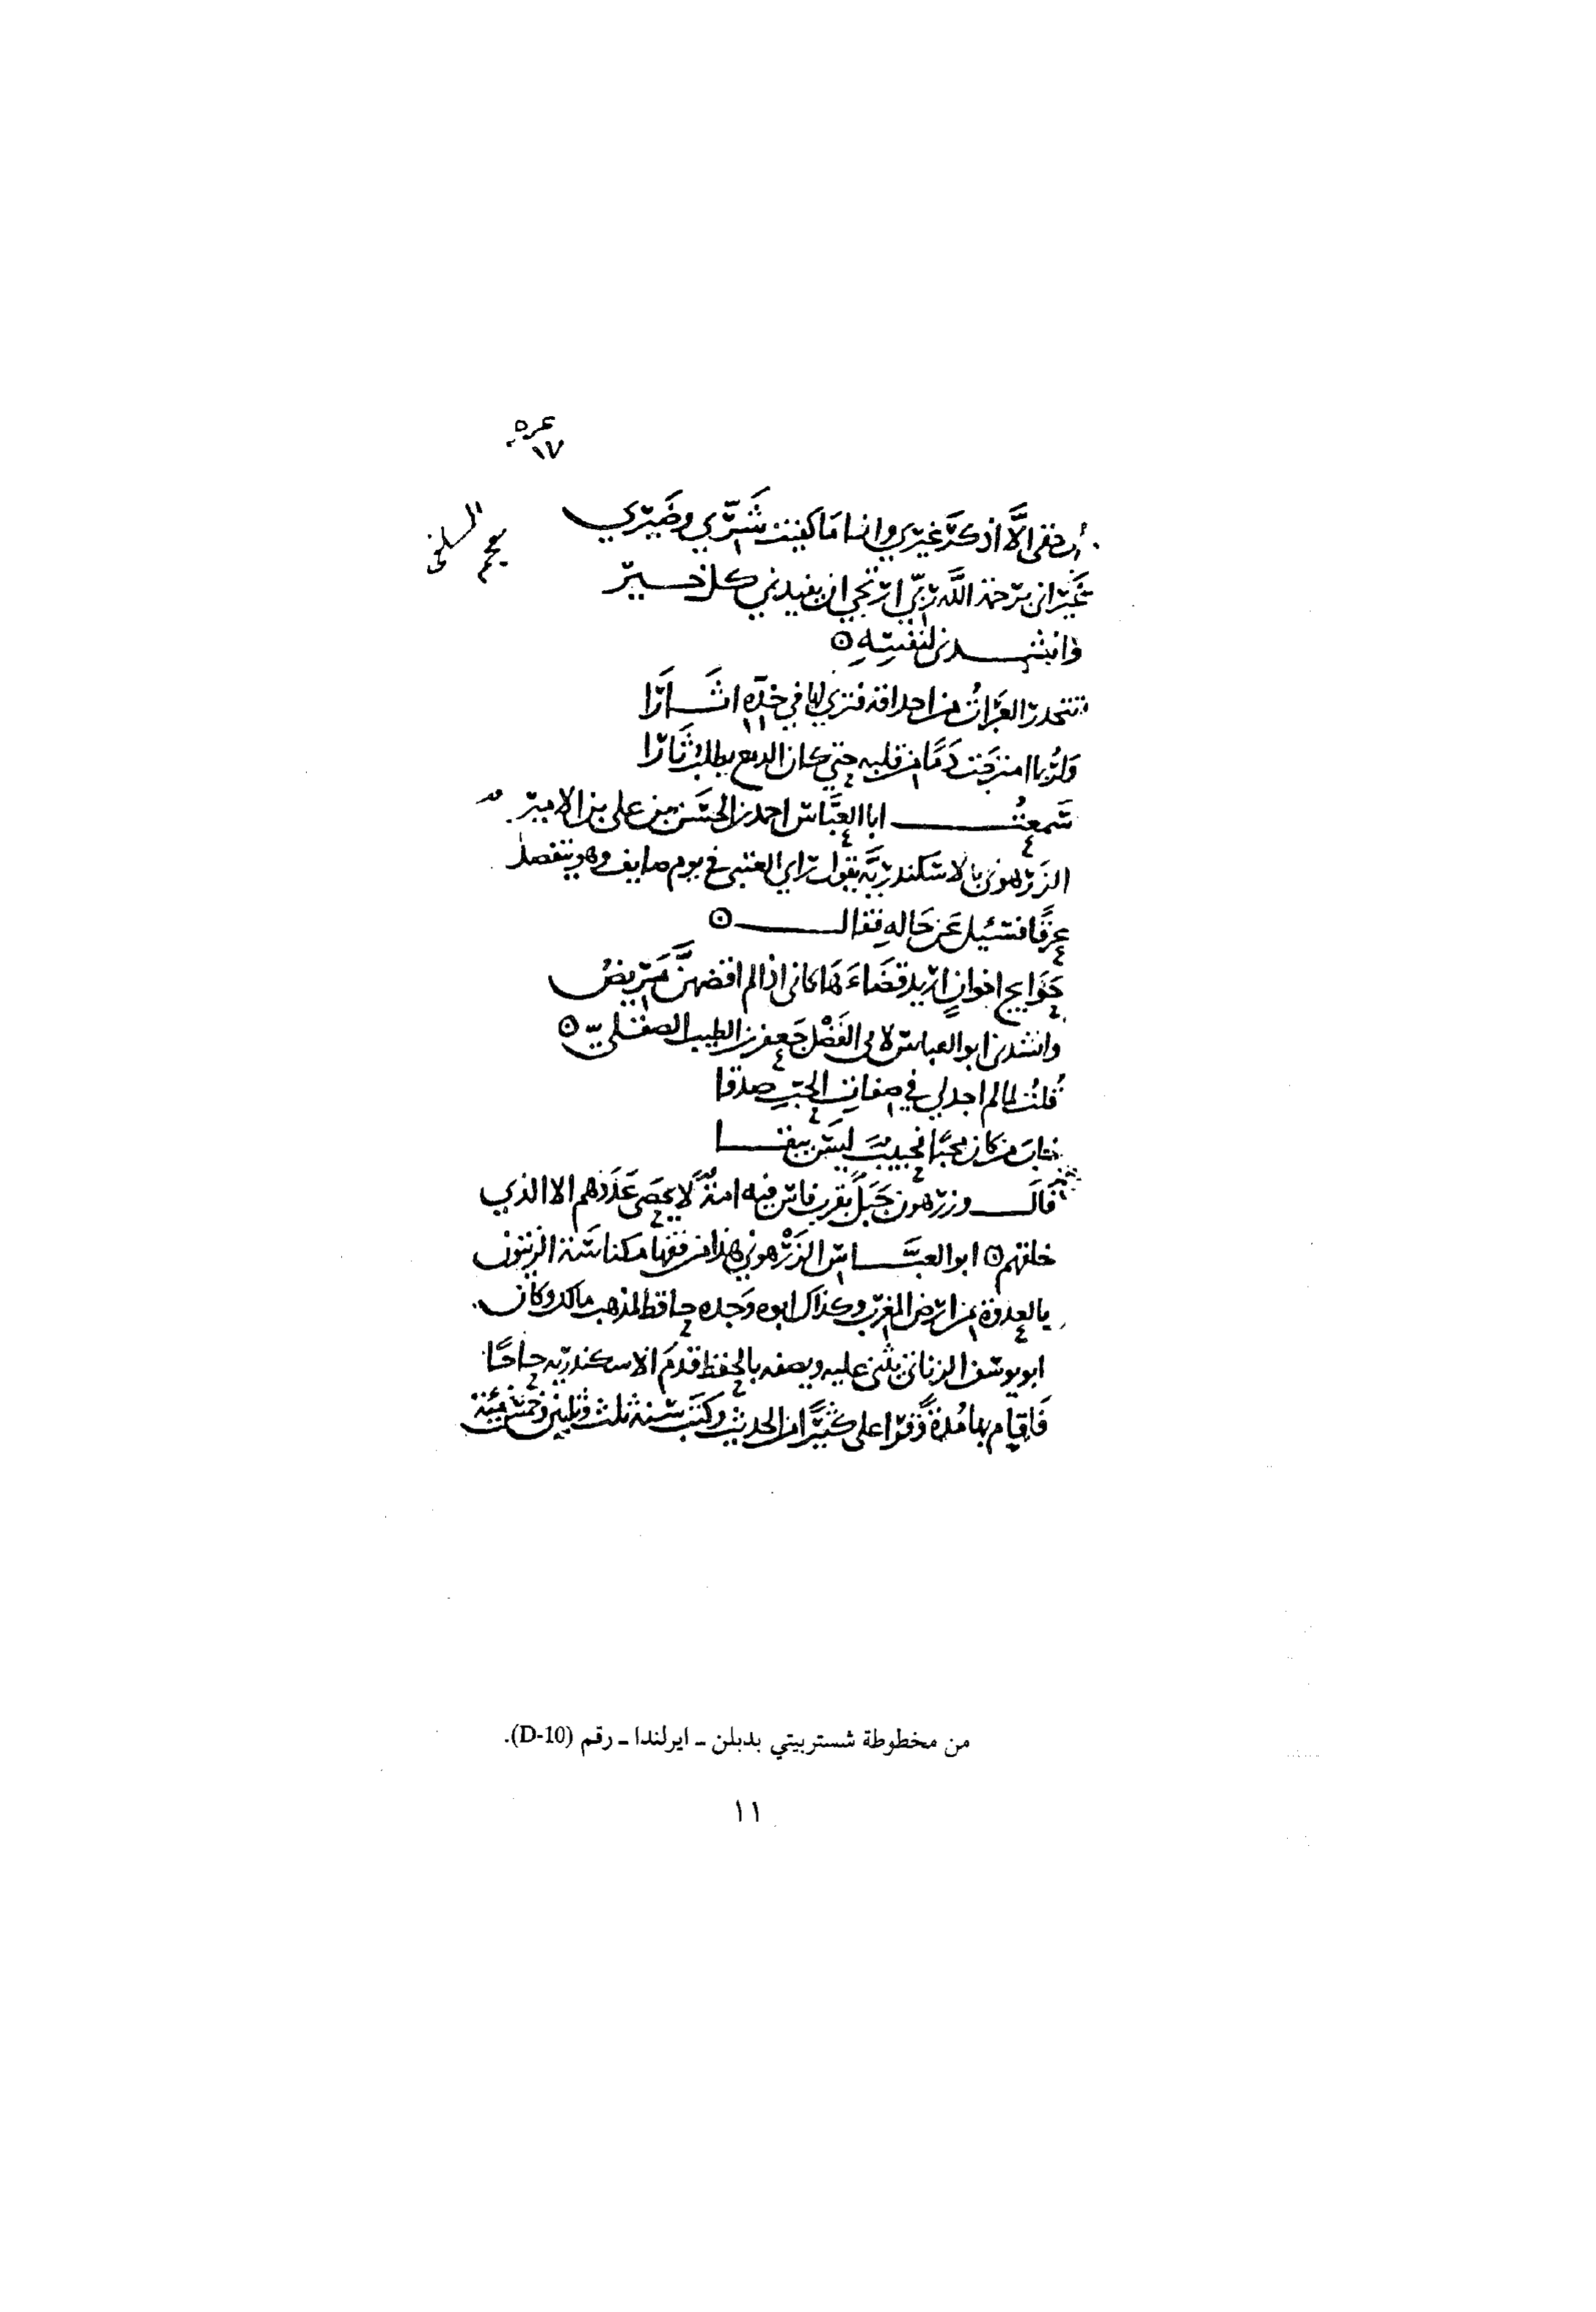 ١٧
معجم السلفي
حقي الا اذكر غيري وانا ما كفيت شري وضيري
غير اني برحمة الله ربي ارتجي ان يفيدني كل خير
وانشدني لنفسه
تتحدر العبرات من احداقه فترى لها في خده اثارا
ولربما امتزجت دما من قلبه حتى كان الدمع يطلب ثارا
سمعت ابا العباس احمد بن الحسن بن علي بن الامير
الزرهوني بالاسكندرية يقول راي العتبي في يوم صايف وهو يتفصد
عرقا فسئل عن حاله فقال
حوايج اخوان اريد قضاءها كاني اذا لم اقضهن مريض
وانشدني ابو العباس لابي الفضل جعفر بن الطيب الصقلي
قلت لما لم اجد لي في صفات الحب صدقا
من كان محبا لحبيب ليس يبقا
قال وزرهون جبل بقرب فاس فيه امة لا يحصى عددهم الا الذي
خلقهم ابو العباس الزرهوني هذا من فقها مكناسة الزيتون
بالعدوة من ارض المغرب وكذاك ابوه وجده حافظ لمذهب مالك وكان
ابو يوسف الزناتي يثني عليه ويصفه بالحفظ قدم الاسكندرية حاجا
فاقام بها مدة وقرا علي كثيرا من الحديث وكتب سنة ثلث وثلثين وخمس مئة
من مخطوطة شستربيتي بدبلن - ايرلندا - رقم (D-10).
١١